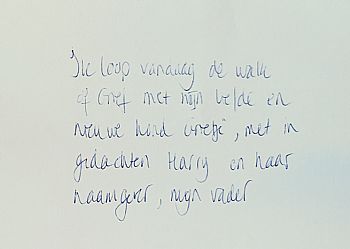 Ik loop vandaag de walk
of Grief met mijn liefde en
nieuwe hond Gretji, met in
gedachten Harry en haar
naamgever, mijn vader